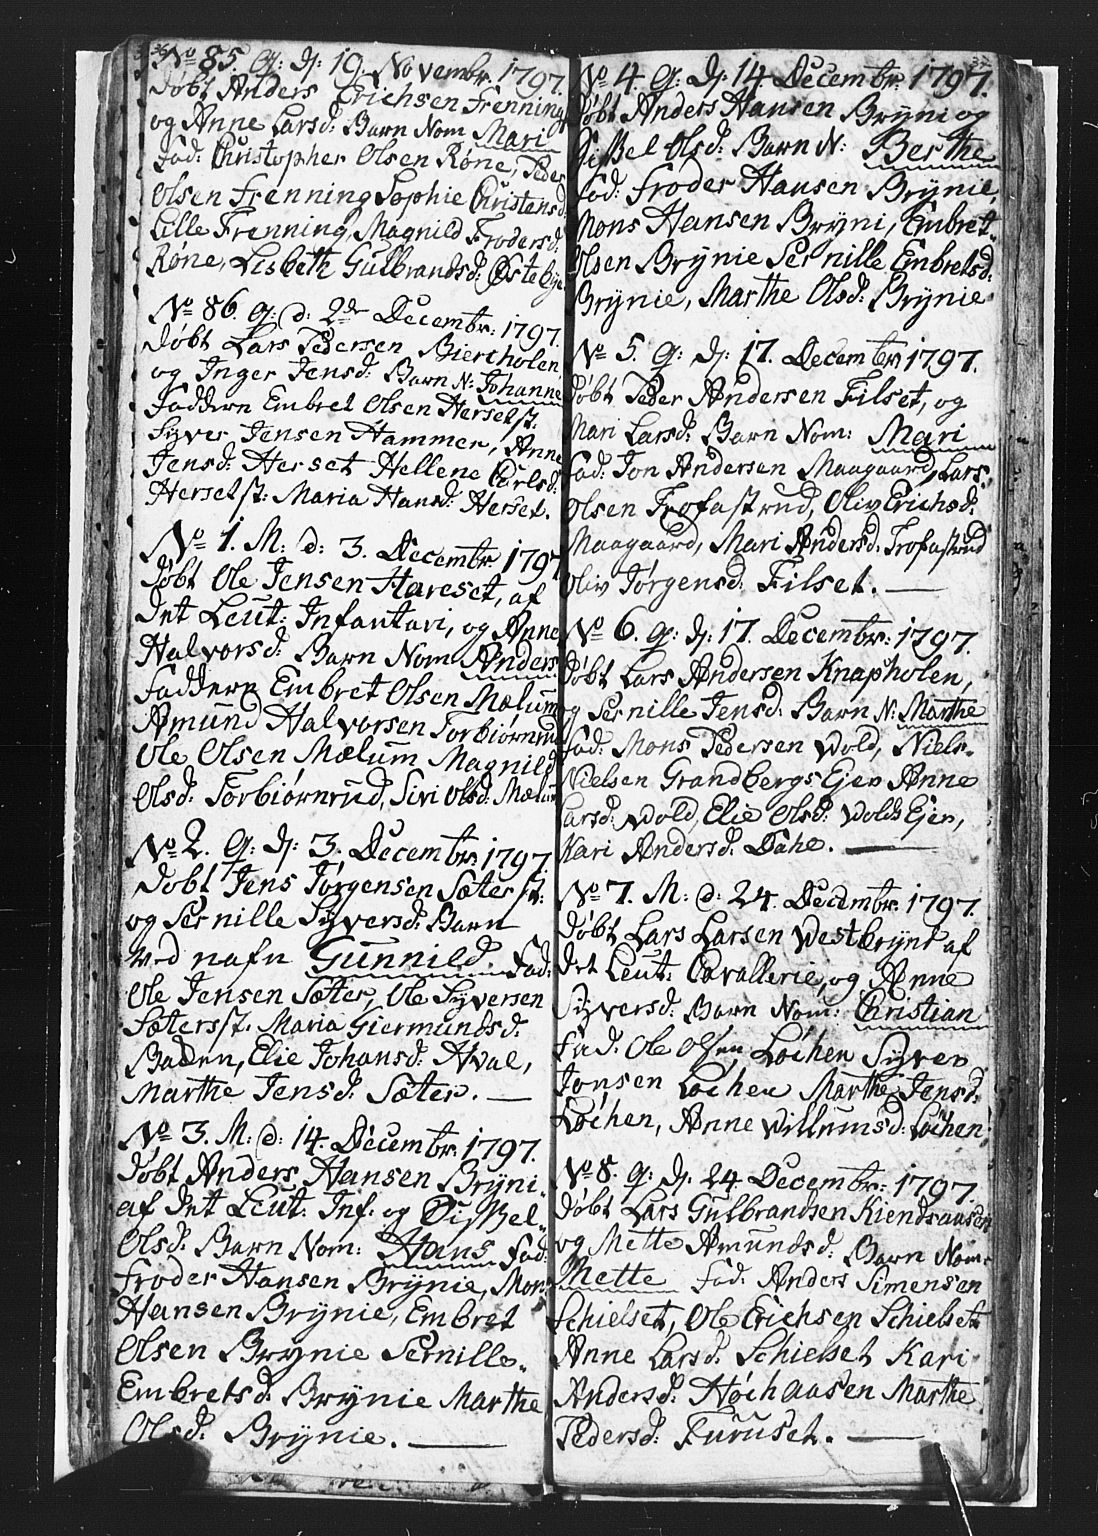 36
No 85. q: d: 19. Novembr. 1797.
Døbt Anders Erichsen Frenning
og Anne Larsd: Barn Nom Mari
Fad: Christopher Olsen Røne, Peder
Olsen Frenning Sophie Christensd:
Lille Frenning, Magnild Frodersd:
Røne, Lisbeth Gulbrandsd: Østebye
No 86. q: d: 2de Decembr: 1797.
Døbt Lars Pedersen Biercholen,
og Inger Jensd: Barn N: Johanne
Faddern Embret Olsen Hersetst:
Syver Jensen Hammer, Anne
Jensd: Herset Hellene Carlsd:
Hersetst: Maria Hansd: Herset.
No 1. M: d: 3. Decembr 1797
Døbt Ole Jensen Hareset, af
det Leut: Infantari, og Anne
Halvorsd: Barn Nom Anders
Faddern Embret Olsen Mælum
Amund Halvorsen Torbiørnrud
Ole Olsen Mælum Magnild
Olsd: Torbiørnrud, Siri Olsd: Mælum
No 2. q: d: 3. Decembr. 1797.
Døbt Jens Jørgensen Sæterst:
og Pernille Syversd: Barn
ved nafn Gunnild. Fad:
Ole Jensen Sæter, Ole Syversen
Sætersst: Maria Giermundsd:
Baden, Elie Johansd: Hval,
Marthe Jensd: Sæter. —
No 3. M: d: 14. Decembr. 1797.
Døbt Anders Hansen Bryni
af det Leut: Inf. og Sissel
Olsd: Barn Nom: Hans Fad:
Froder Hansen Brynie, Mons
Hansen Brynie, Embret
Olsen Brynie Pernille
Embretsd: Brynie Marthe
Olsd: Brynie. —
37
No 4. q: d: 14. Decembr: 1797.
Døbt Anders Hansen Bryni og
Sissel Olsd: Barn N: Berthe
Fad: Froder Hansen Brynie,
Mons Hansen Bryni, Embret
Olsen Brynie Pernille Embretsd:
Brynie, Marthe Olsd: Brynie
No 5. q: d: 17. Decembr 1797.
Døbt Peder Andersen Filset, og
Mari Larsd: Barn Nom: Mari
Fad: Jon Andersen Maagaard, Lars
Olsen Trofastrud, Oliv Erichsd:
Maagaard, Mari Andersd: Trofastrud
Oliv Jørgensd: Filset. —
No 6. q: d: 17. Decembr: 1797.
Døbt Lars Andersen Knapholen,
og Pernille Jensd: Barn N: Marthe
Fad: Mons Pedersen Wold, Niels
Nielsen Grandbergs Ejer Anne
Larsd: Wold, Elie Olsd: Wolds Ejer,
Kari Andersd: Dahe. —
No 7. M: d: 24. Decembr. 1797.
Døbt Lars Larsen Westbrynt af
det Leut: Cavallerie, og Anne
Syversd: Barn Nom: Christian
Fad: Ole Olsen Løchen Syver
Jonsen Løchen Marthe Jensd:
Løchen, Anne Willumsd: Løchen:
No 8. q: d: 24. Decembr: 1797.
Døbt Lars Gulbrandsen Kiendsaasen
og Mette Amundsd: Barn Nom:
Mette Fad: Anders Simensen
Schielset, Ole Erichsen Schielset
Anne Larsd: Schielset Kari
Andersd: Høchaasen Marthe
Pedersd: Furuset. —